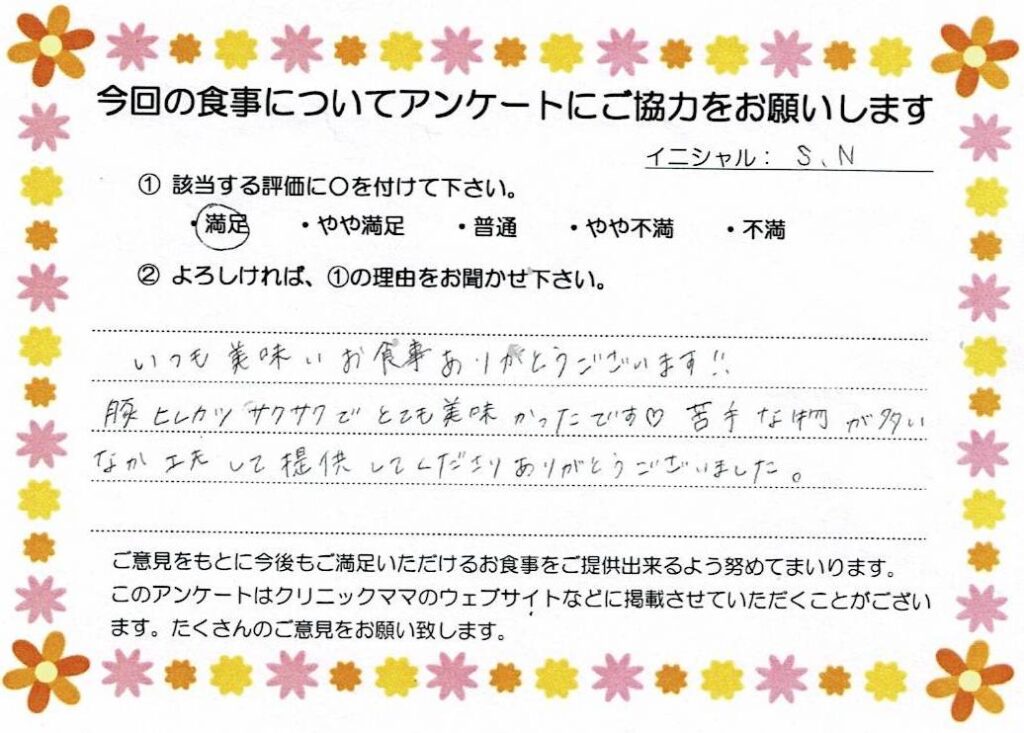 今回の食事についてアンケートにご協力をお願いします
イニシャル： S、N
① 該当する評価に〇を付けて下さい。
・満足 ・やや満足 ・普通 ・やや不満 ・不満
② よろしければ、①の理由をお聞かせ下さい。
いつも美味いお食事ありがとうございます!!
豚ヒレカツサクサクでとても美味かったです♡ 苦手な物が多い
なか工夫して提供してくださりありがとうございました。
ご意見をもとに今後もご満足いただけるお食事をご提供出来るよう努めてまいります。
このアンケートはクリニックママのウェブサイトなどに掲載させていただくことがござい
ます。たくさんのご意見をお願い致します。